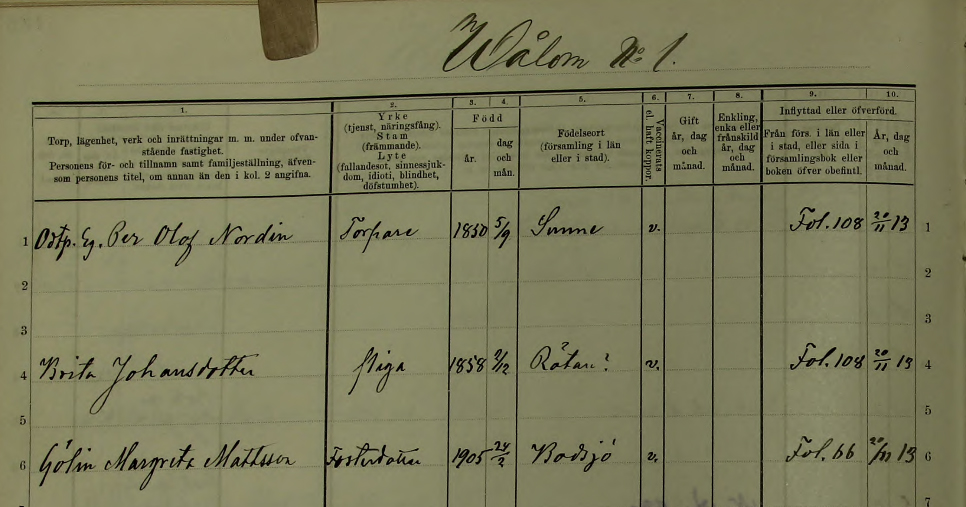 Wålom No 1.
1. 2. 3. 4. 5. 6. 7. 8. 9. 10.
Torp, lägenhet, verk och inrättningar m. m. under ofvan-
stående fastighet.
Personens för- och tillnamn samt familjeställning, äfven-
som personens titel, om annan än den i kol. 2 angifna.
Yrke
(tjenst, näringsfång).
Stam
(främmande).
Lyte
(fallandesot, sinnessjuk-
dom, idioti, blindhet,
döfstumhet).
Född
år.
dag
och
mån.
Födelseort
(församling i län
eller i stad).
Vaccinerats
el. haft koppor.
Gift
år, dag
och
månad.
Enkling,
enka eller
frånskild
år, dag
och
månad.
Inflyttad eller öfverförd.
Från förs. i län eller
i stad, eller sida i
församlingsbok eller
boken öfver obefintl.
År, dag
och
månad.
1 Per Olof Nordin Torpare 1850 5/9 Sunne v. Fol. 108 20/11 13 1
2 2
3 3
4 Brita Johansdotter Piga 1858 2/12 Rätan? v. Fol. 108 20/11 13 4
5 5
6 Gölin Margreta Mattsson Fosterdotter 1905 24/2 Bodsjö v. Fol. 66 20/11 13 6
7